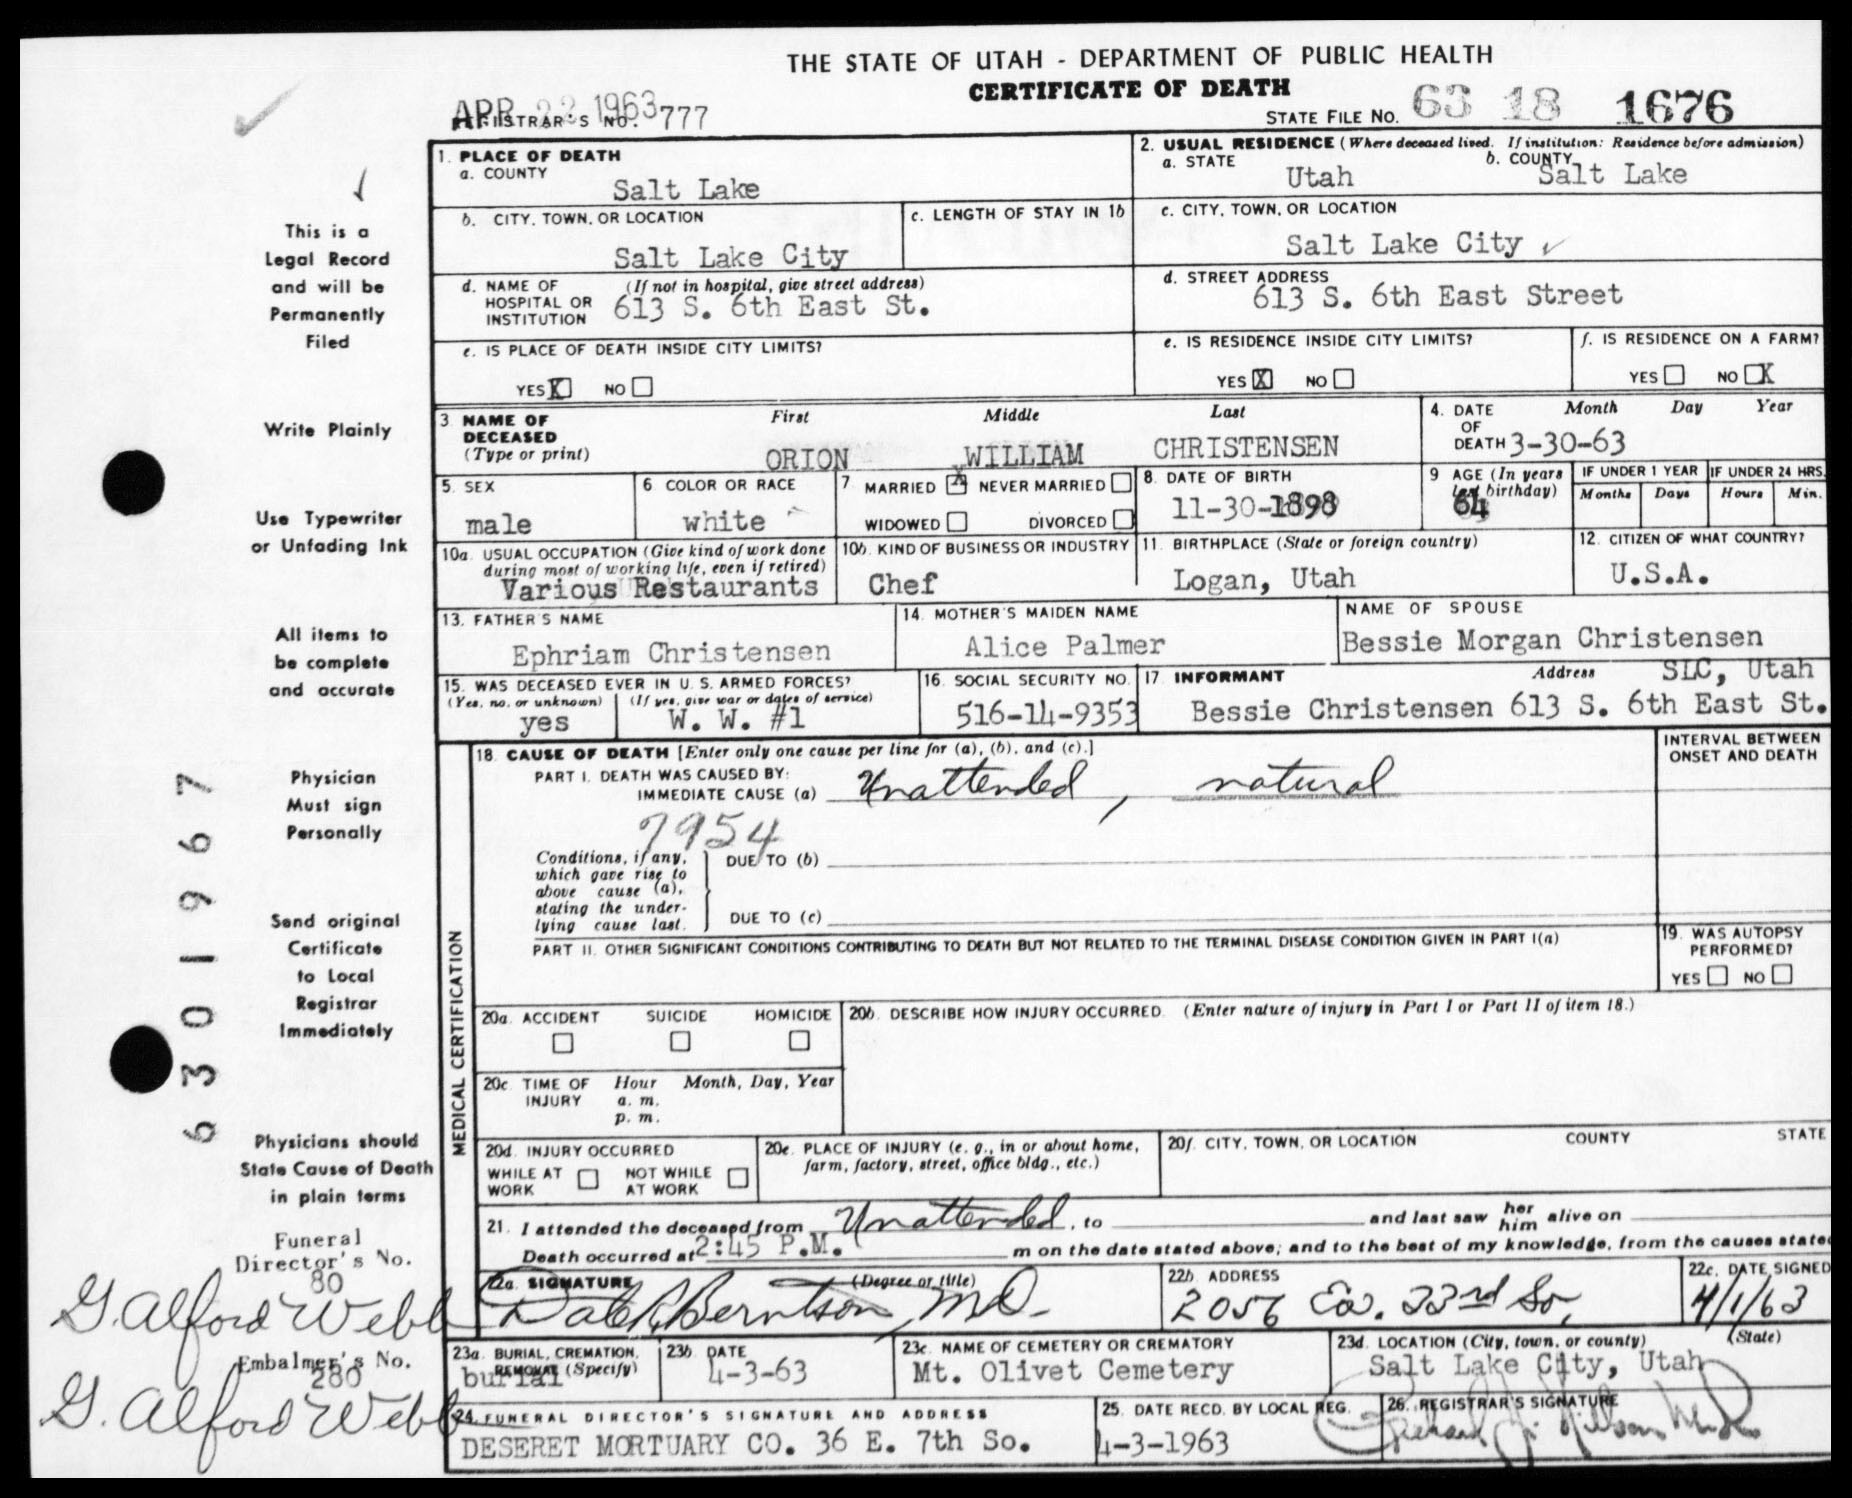 THE STATE OF UTAH - DEPARTMENT OF PUBLIC HEALTH
CERTIFICATE OF DEATH
APR 22 1963
REGISTRAR'S NO. 777
STATE FILE NO. 63 18 1676
This is a
Legal Record
and will be
Permanently
Filed
Write Plainly
Use Typewriter
or Unfading Ink
All items to
be complete
and accurate
Physician
Must sign
Personally
Send original
Certificate
to Local
Registrar
Immediately
Physicians should
State Cause of Death
in plain terms
Funeral
Director's No.
80
G. Alford Webb
Embalmer's No.
280
G. Alford Webb
6301967
1. PLACE OF DEATH
a. COUNTY
Salt Lake
2. USUAL RESIDENCE (Where deceased lived. If institution: Residence before admission)
a. STATE
Utah
b. COUNTY
Salt Lake
b. CITY, TOWN, OR LOCATION
Salt Lake City
c. LENGTH OF STAY IN 1b
c. CITY, TOWN, OR LOCATION
Salt Lake City
d. NAME OF HOSPITAL OR INSTITUTION (If not in hospital, give street address)
613 S. 6th East St.
d. STREET ADDRESS
613 S. 6th East Street
e. IS PLACE OF DEATH INSIDE CITY LIMITS?
YES X NO
e. IS RESIDENCE INSIDE CITY LIMITS?
YES X NO
f. IS RESIDENCE ON A FARM?
YES NO X
3. NAME OF DECEASED (Type or print)
First Middle Last
ORION WILLIAM CHRISTENSEN
4. DATE OF DEATH Month Day Year
3-30-63
5. SEX
male
6 COLOR OR RACE
white
7 MARRIED X NEVER MARRIED
WIDOWED DIVORCED
8. DATE OF BIRTH
11-30-1898
9 AGE (In years last birthday)
64
IF UNDER 1 YEAR
Months Days
IF UNDER 24 HRS.
Hours Min.
10a. USUAL OCCUPATION (Give kind of work done during most of working life, even if retired)
Various Restaurants
10b. KIND OF BUSINESS OR INDUSTRY
Chef
11. BIRTHPLACE (State or foreign country)
Logan, Utah
12. CITIZEN OF WHAT COUNTRY?
U.S.A.
13. FATHER'S NAME
Ephriam Christensen
14. MOTHER'S MAIDEN NAME
Alice Palmer
NAME OF SPOUSE
Bessie Morgan Christensen
15. WAS DECEASED EVER IN U. S. ARMED FORCES?
(Yes, no, or unknown) (If yes, give war or dates of service)
yes W. W. #1
16. SOCIAL SECURITY NO.
516-14-9353
17. INFORMANT Address SLC, Utah
Bessie Christensen 613 S. 6th East St.
MEDICAL CERTIFICATION
18. CAUSE OF DEATH [Enter only one cause per line for (a), (b), and (c).]
INTERVAL BETWEEN
ONSET AND DEATH
PART I. DEATH WAS CAUSED BY:
IMMEDIATE CAUSE (a) Unattended, natural
7954
Conditions, if any,
which gave rise to
above cause (a),
stating the under-
lying cause last.
DUE TO (b)
DUE TO (c)
PART II. OTHER SIGNIFICANT CONDITIONS CONTRIBUTING TO DEATH BUT NOT RELATED TO THE TERMINAL DISEASE CONDITION GIVEN IN PART I(a)
19. WAS AUTOPSY PERFORMED?
YES NO
20a. ACCIDENT SUICIDE HOMICIDE
20b. DESCRIBE HOW INJURY OCCURRED. (Enter nature of injury in Part I or Part II of item 18.)
20c. TIME OF INJURY Hour Month, Day, Year
a. m.
p. m.
20d. INJURY OCCURRED
WHILE AT WORK NOT WHILE AT WORK
20e. PLACE OF INJURY (e. g., in or about home, farm, factory, street, office bldg., etc.)
20f. CITY, TOWN, OR LOCATION COUNTY STATE
21. I attended the deceased from Unattended, to and last saw her him alive on
Death occurred at 2:45 P.M. m on the date stated above; and to the best of my knowledge, from the causes stated
22a. SIGNATURE (Degree or title)
Dale R. Berntson, M.D.
22b. ADDRESS
2056 Ea. 33rd So.
22c. DATE SIGNED
4/1/63
23a. BURIAL, CREMATION, REMOVAL (Specify)
burial
23b. DATE
4-3-63
23c. NAME OF CEMETERY OR CREMATORY
Mt. Olivet Cemetery
23d. LOCATION (City, town, or county) (State)
Salt Lake City, Utah
24. FUNERAL DIRECTOR'S SIGNATURE AND ADDRESS
DESERET MORTUARY CO. 36 E. 7th So.
25. DATE RECD. BY LOCAL REG.
4-3-1963
26. REGISTRAR'S SIGNATURE